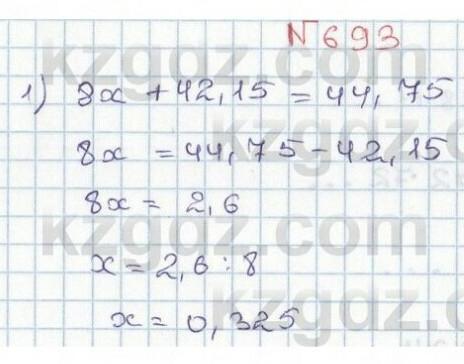 №693
1) 8x + 42,15 = 44,75
8x = 44,75 - 42,15
8x = 2,6
x = 2,6 : 8
x = 0,325
kzgdz.com
kzgdz.com
kzgdz.com